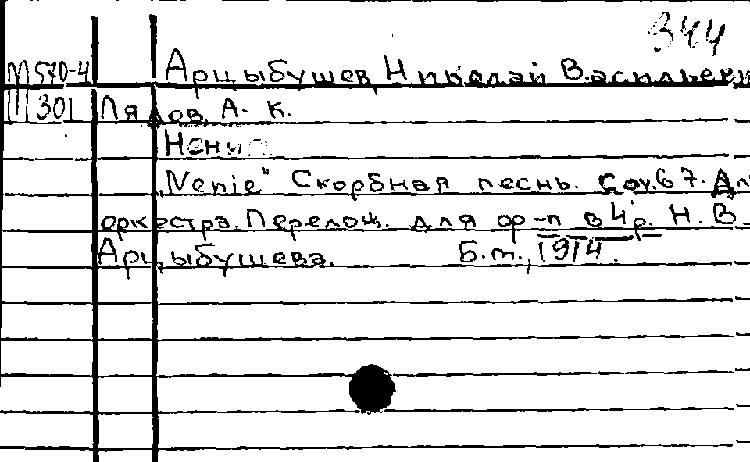 344
М 570-4 Арцыбушев, Николай Васильеви
301 Лядов, А. К.
Нения
„Nenie“ Скорбная песнь. Соч. 67. Дл
оркестра. Перелож. для ф-п в 4 р. Н. В.
Арцыбушева. Б.м., 1914.